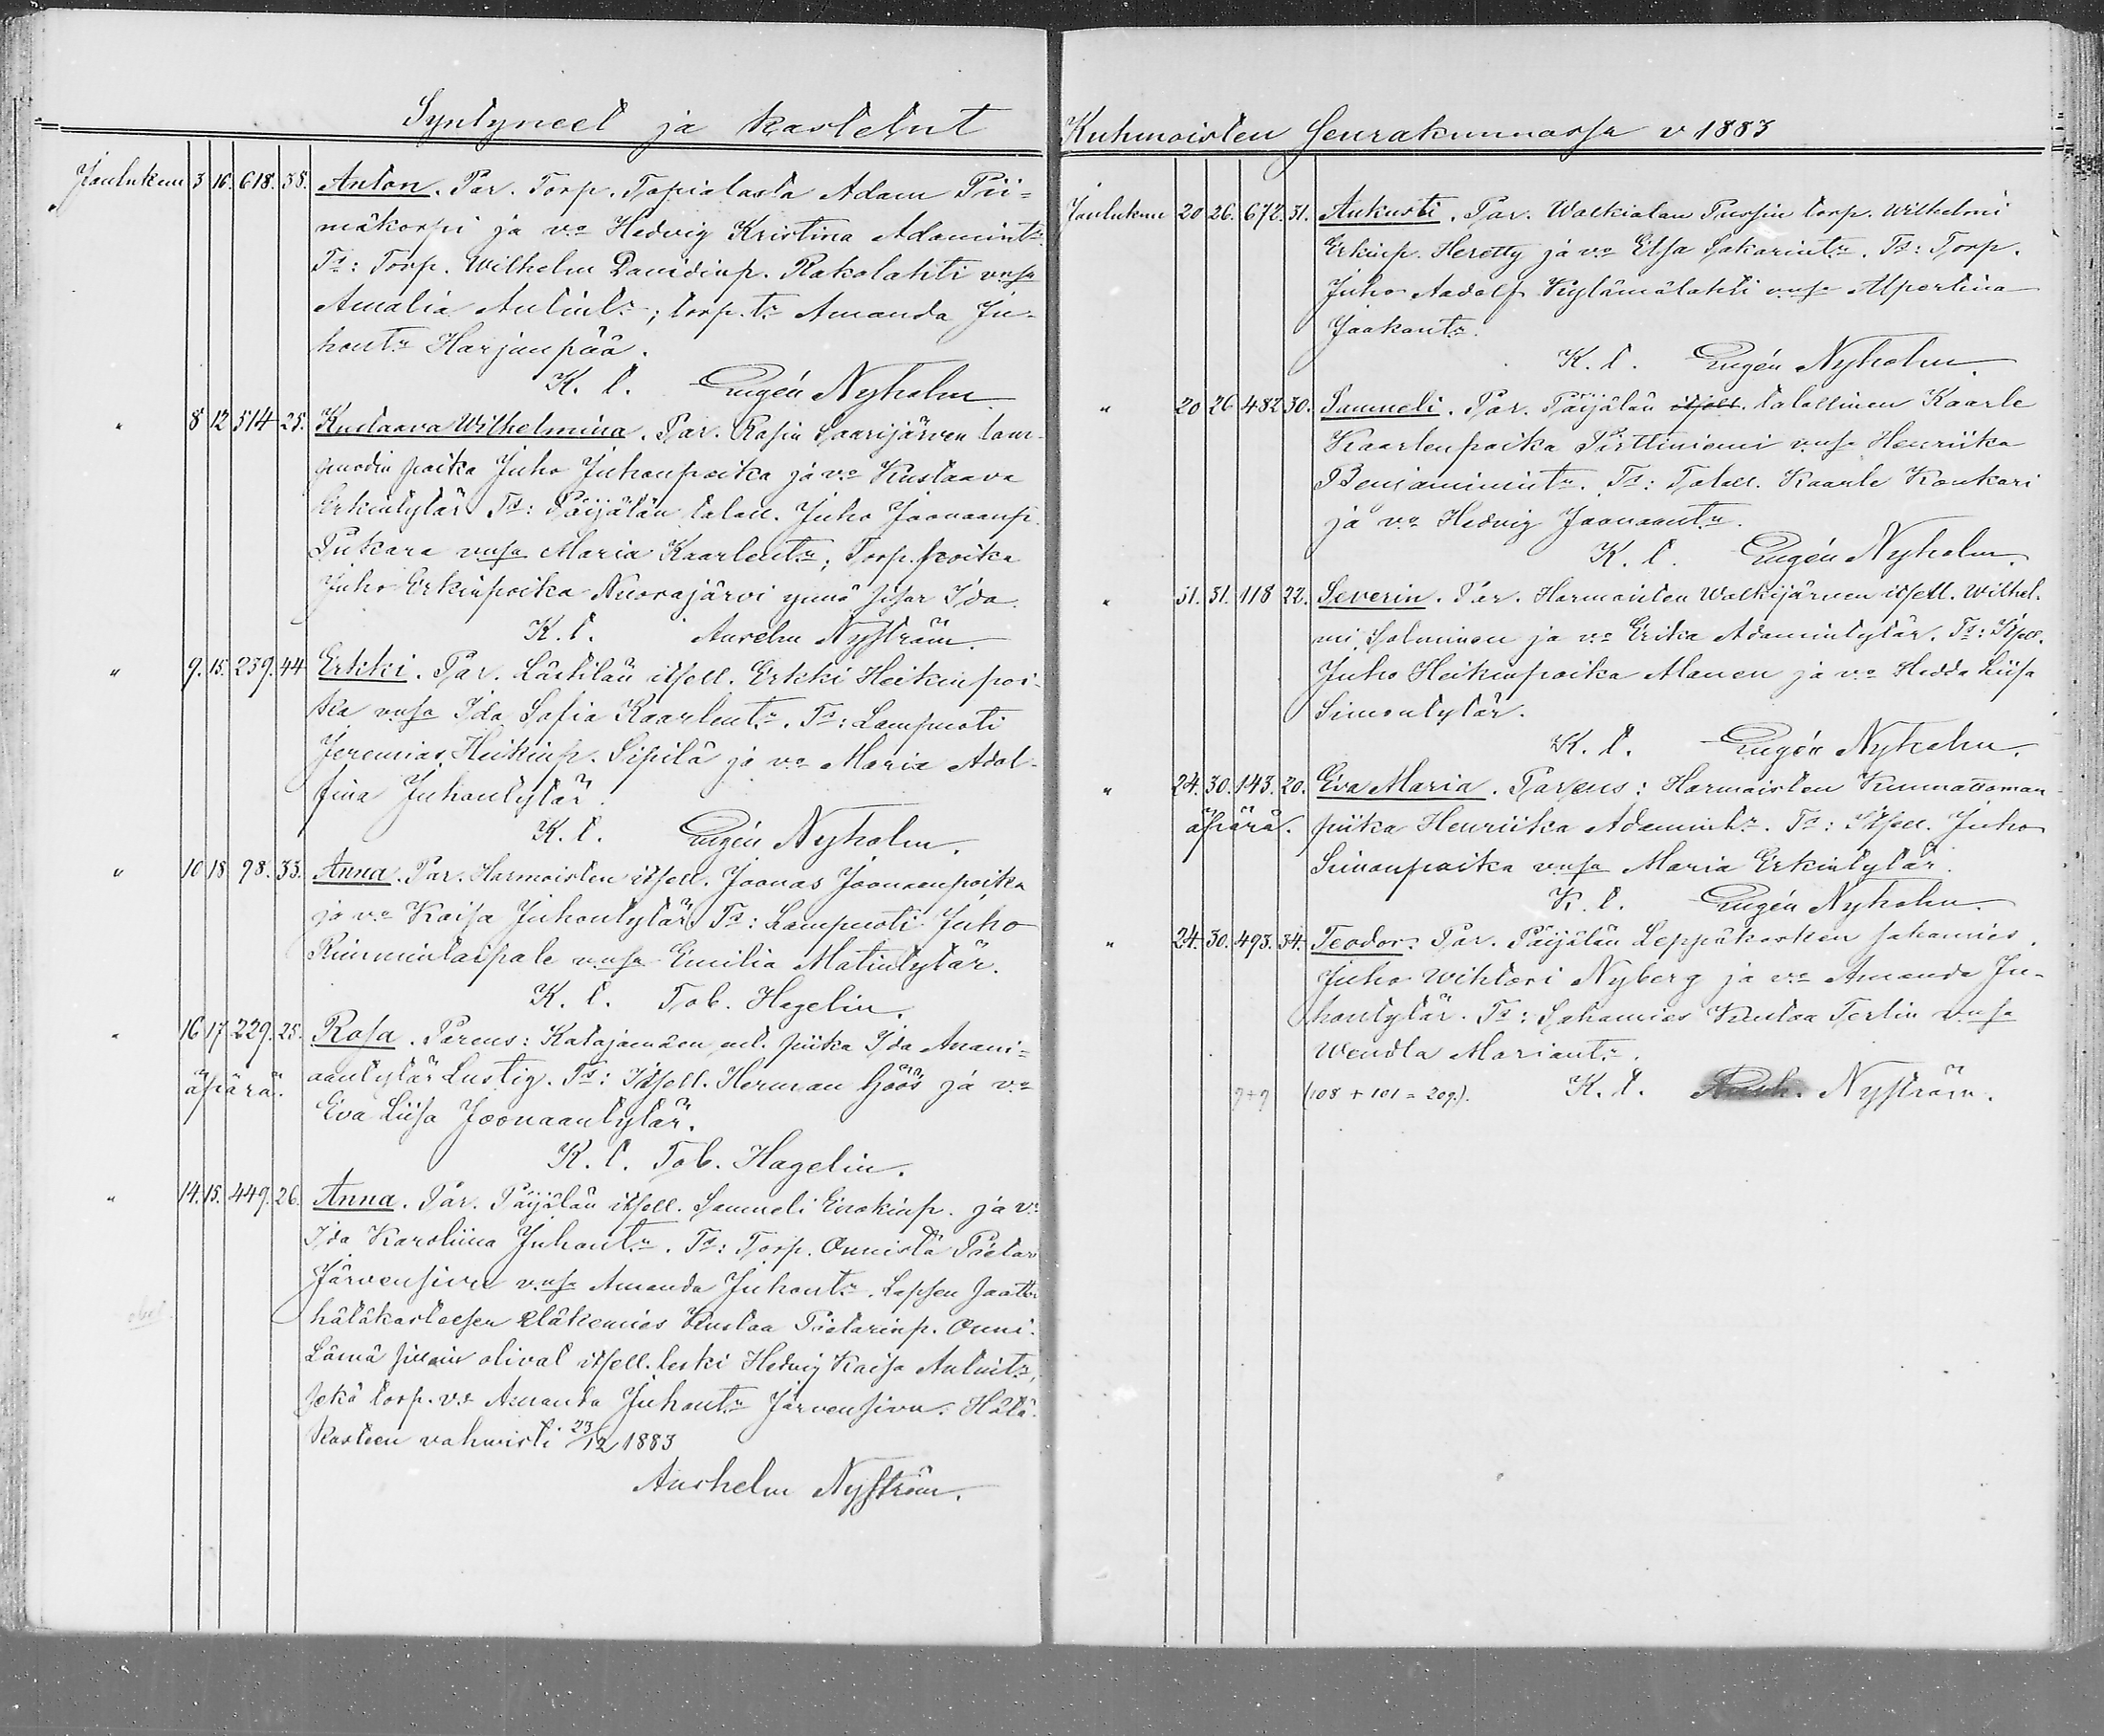 Syntyneet ja kastetut
Joulukuu 3 16. 618. 38. Anton. Par. Torp. Tapialasta Adam Pii-
mäkorpi ja v:o Hedvig Kristina Adamint:r
T:t: Torp. Wilhelm Davidinp. Rakolahti v:nsa
Amalia Antint:r; torp. t:r Amanda Ju-
hont:r Harjunpää.
K. t. Eugén Nyholm.
" 8 12 514 25. Kustaava Wilhelmina. Par. Rasin Saarijärven lam-
puodin poika Juho Juhonpoika ja v:o Kustaava
Erkintytär T:t: Päijälän talon. Juho Joonaanp.
Pukara v:nsa Maria Kaarlent:r; Torp. poika
Juho Erkinpoika Nuorajärvi ynnä sisar Ida.
K. t. Anselm Nyström.
" 9. 15. 239. 44 Erkki. Par. Lästilän itsell. Erkki Heikinpoi-
ka v:nsa Ida Sofia Kaarlent:r. T:t: Lampuoti
Jeremias Heikinp. Sipilä ja v:o Maria Adol-
fina Juhontytär.
K. t. Eugén Nyholm.
" 10 18 98. 33. Anna. Par. Harmoisten itsell. Joonas Joonaanpoika
ja v:o Kaisa Juhontytär T:t: Lampuoti Juho
Rimmintaipale v:nsa Emilia Matintytär.
K. t. Tob. Hagelin.
" 16 17 229. 25. Rosa. Parens: Katajamäen ent. piika Ida Anani-
äpärä. aantytär Lustig. T:t: Itsell. Herman Göös ja v:o
Eva Liisa Joonaantytär.
K. t. Tob. Hagelin.
" 14. 15. 449. 26. Anna. Par. Päijälän itsell. Samueli Enokinp. ja v:o
Ida Karoliina Juhont:r. T:t: Torp. Onnista Pietari
Järvensivu v:nsa Amanda Juhont:r. Lapsen saattoi
hätäkasteesen eläkemies Kustaa Pietarinp. Onni.
Läsnä silloin olivat itsell. leski Hedvig Kaisa Antint:r,
sekä torp. v:o Amanda Juhont:r Järvensivu. Hätä-
kasteen vahvisti 23/12 1883
Anshelm Nyström.
Kuhmoisten Seurakunnassa v 1883
Joulukuu 20 26. 672. 31. Aukusti. Par. Walkialan Pussin torp. Wilhelmi
Erkinp. Heretty ja v:o Elsa Sakarint:r. T:t: Torp.
Juho Aadolf Kylämälahti v:nsa Alpertina
Jaakont:r.
K. t. Eugén Nyholm.
" 20 26 482 30. Samueli. Par. Päijälän itsell. talollinen Kaarle
Kaarlenpoika Pirttiniemi v:nsa Henriika
Benjaminint:r. T:t: Talon. Kaarle Konkari
ja v:o Hedvig Joonaant:r.
K. t. Eugén Nyholm.
" 31. 31. 118 22. Severin. Par. Harmoisten Walkijärven itsell. Wilhel-
mi Salminen ja v:o Erika Adamintytär. T:t: Itsell.
Juho Heikinpoika Alanen ja v:o Hedda Liisa
Simontytär.
K. t. Eugén Nyholm.
" 24. 30. 143. 20. Eva Maria. Parens: Harmoisten Kummattoman
äpärä. piika Henriika Adamint:r. T:t: Itsell. Juho
Simonpoika v:nsa Maria Erkintytär.
K. t. Eugén Nyholm.
" 24. 30. 493. 34. Teodor. Par. Päijälän Leppäkosken sahamies
Juho Wihtori Nyberg ja v:o Amanda Ju-
hontytär. T:t: Sahamies Kustaa Terlin v:nsa
Wendla Mariant:r.
9+9 (108 + 101 = 209.). K. t. Nyström.